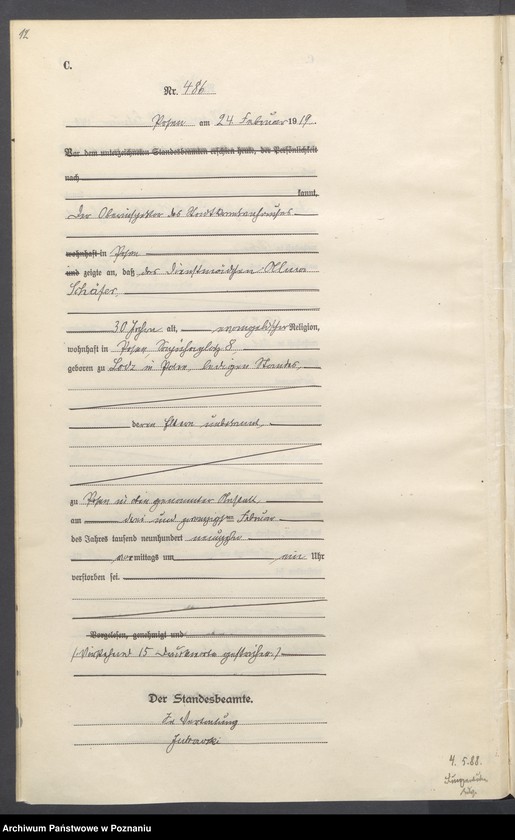 12
C.
Nr. 486
Posen am 24 Februar 1919.
Vor dem unterzeichneten Standesbeamten erschien heute, der Persönlichkeit
nach
kannt,
Der Oberinspektor des Stadtkrankenhauses
wohnhaft in Posen
und zeigte an, daß das Dienstmädchen Alma
Schäfer,
30 Jahre alt, evangelischer Religion,
wohnhaft in Posen 8
geboren zu Lodz in Polen, ledigen Standes,
deren Eltern unbekannt,
zu Posen in oben genannter Anstalt
am drei und zwanzigsten Februar
des Jahres tausend neunhundert neunzehn
vormittags um ein Uhr
verstorben sei.
Vorgelesen, genehmigt und
(Vorstehend 15 Druckworte gestrichen.)
Der Standesbeamte.
In Vertretung
4. 5. 88.
Archiwum Państwowe w Poznaniu